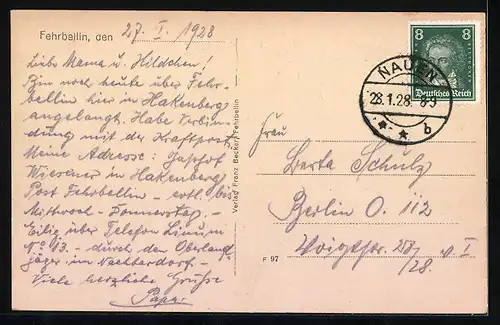 Fehrbellin, den 27. I. 1928
Liebe Mama u. Hildchen!
Bin noch heute über Fehr-
bellin hier in Hakenberg
angelangt. Habe Verbin-
dung mit der Kraftpost.
Meine Adresse: Gasthof
in Hakenberg
Post Fehrbellin - evtl. bis
Mittwoch - Donnerstag. -
Eilig über Telefon Linum
No 13. - durch den Oberland-
jäger in
Viele herzliche Grüße
Papa.
Verlag Franz Becker, Fehrbellin
F 97
NAUEN
28.1.28. 8-9
* * b
8 8
Deutsches Reich
Frau
Berta Schulz
Berlin O. 112
Voigtstr. 27/28. v. I